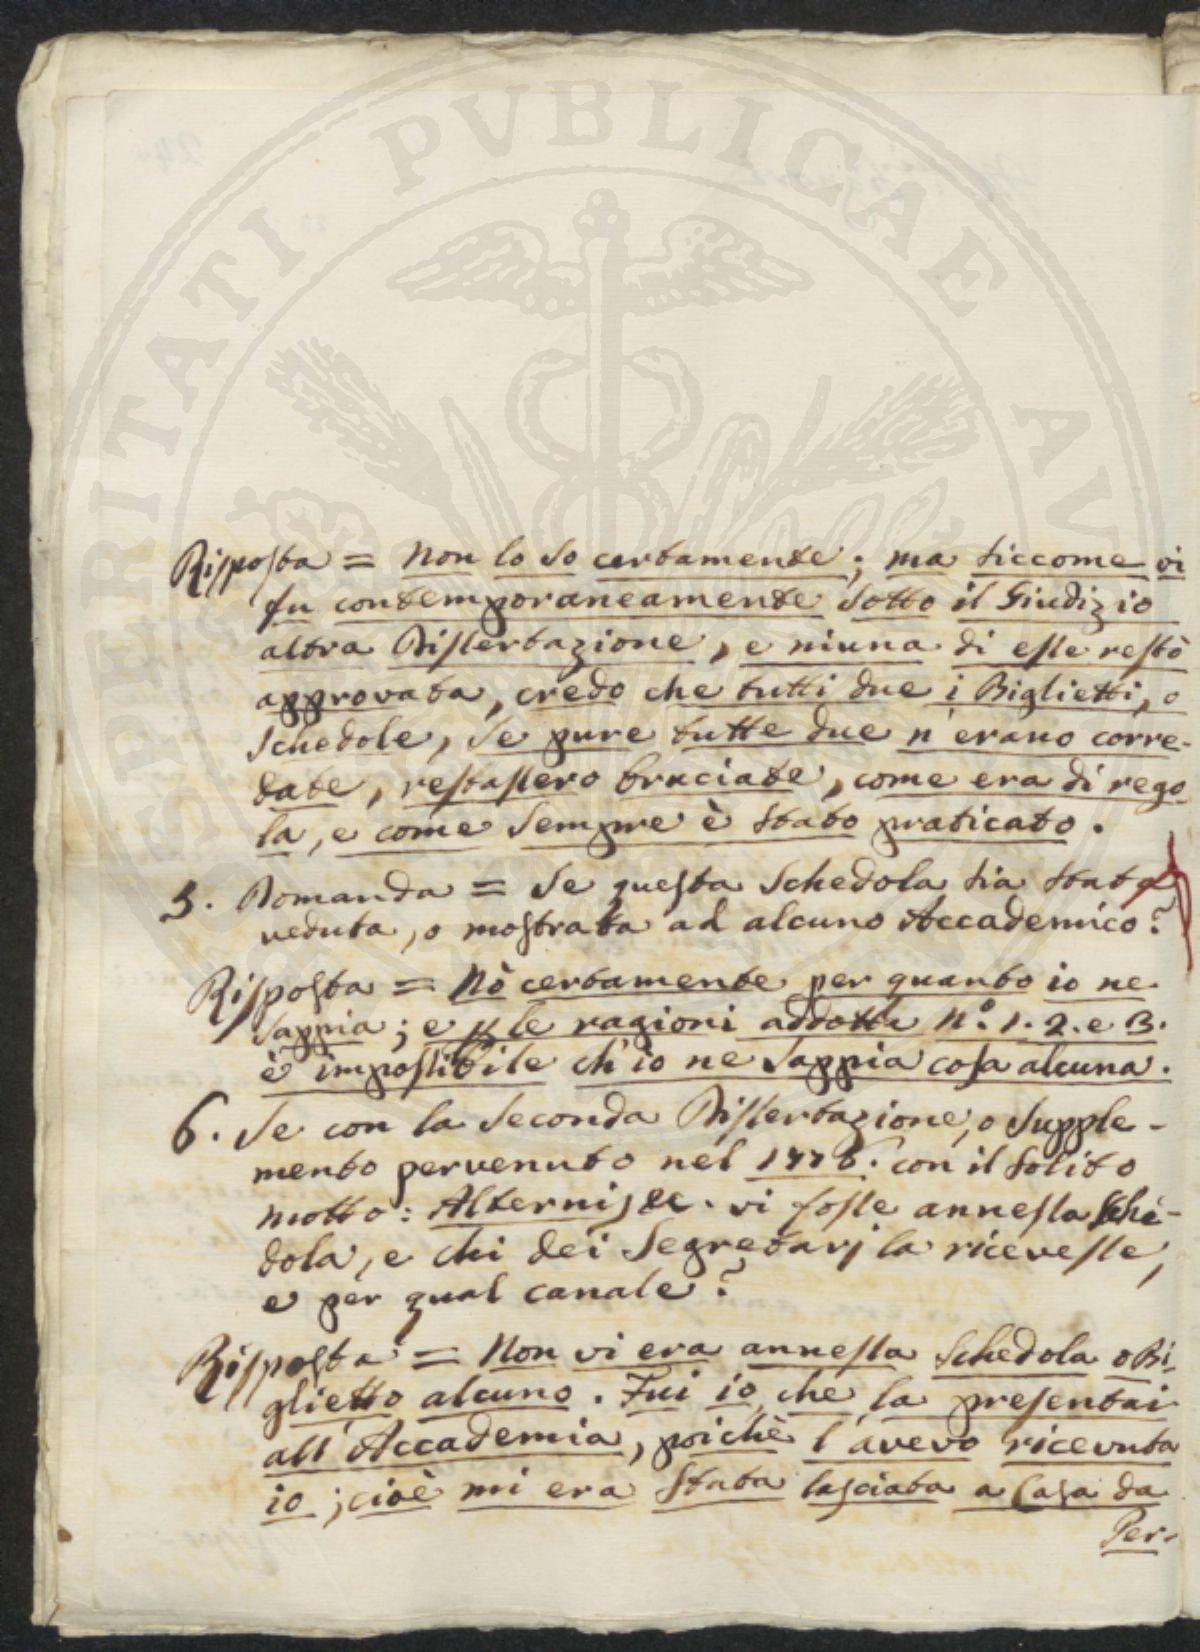 PVBLICAE
SPERITATI
AV
Risposta = Non lo so certamente; ma siccome vi
fu contemporaneamente sotto il Giudizio
altra Dissertazione, e niuna di esse restò
approvata, credo che tutti due i Biglietti, o
Schedole, se pure tutte due n'erano corre-
date, restassero bruciate, come era di rego-
la, e come sempre è stato praticato.
5. Domanda = Se questa Schedola sia stata
veduta, o mostrata ad alcuno Accademico?
Risposta = Nò certamente per quanto io ne
sappia; e p le ragioni addotte N.° 1. 2. e 3.
è impossibile ch'io ne sappia cosa alcuna.
6. Se con la seconda Dissertazione, o Supple-
mento pervenuto nel 1778. con il solito
motto: Alternis &c. vi fosse annessa Sche-
dola, e chi dei Segretarj la ricevesse,
e per qual canale?
Risposta = Non vi era annessa Schedola o Bi-
glietto alcuno. Fui io che la presentai
all'Accademia, poichè l'avevo ricevuta
io; cioè mi era stata lasciata a Casa da
Per-